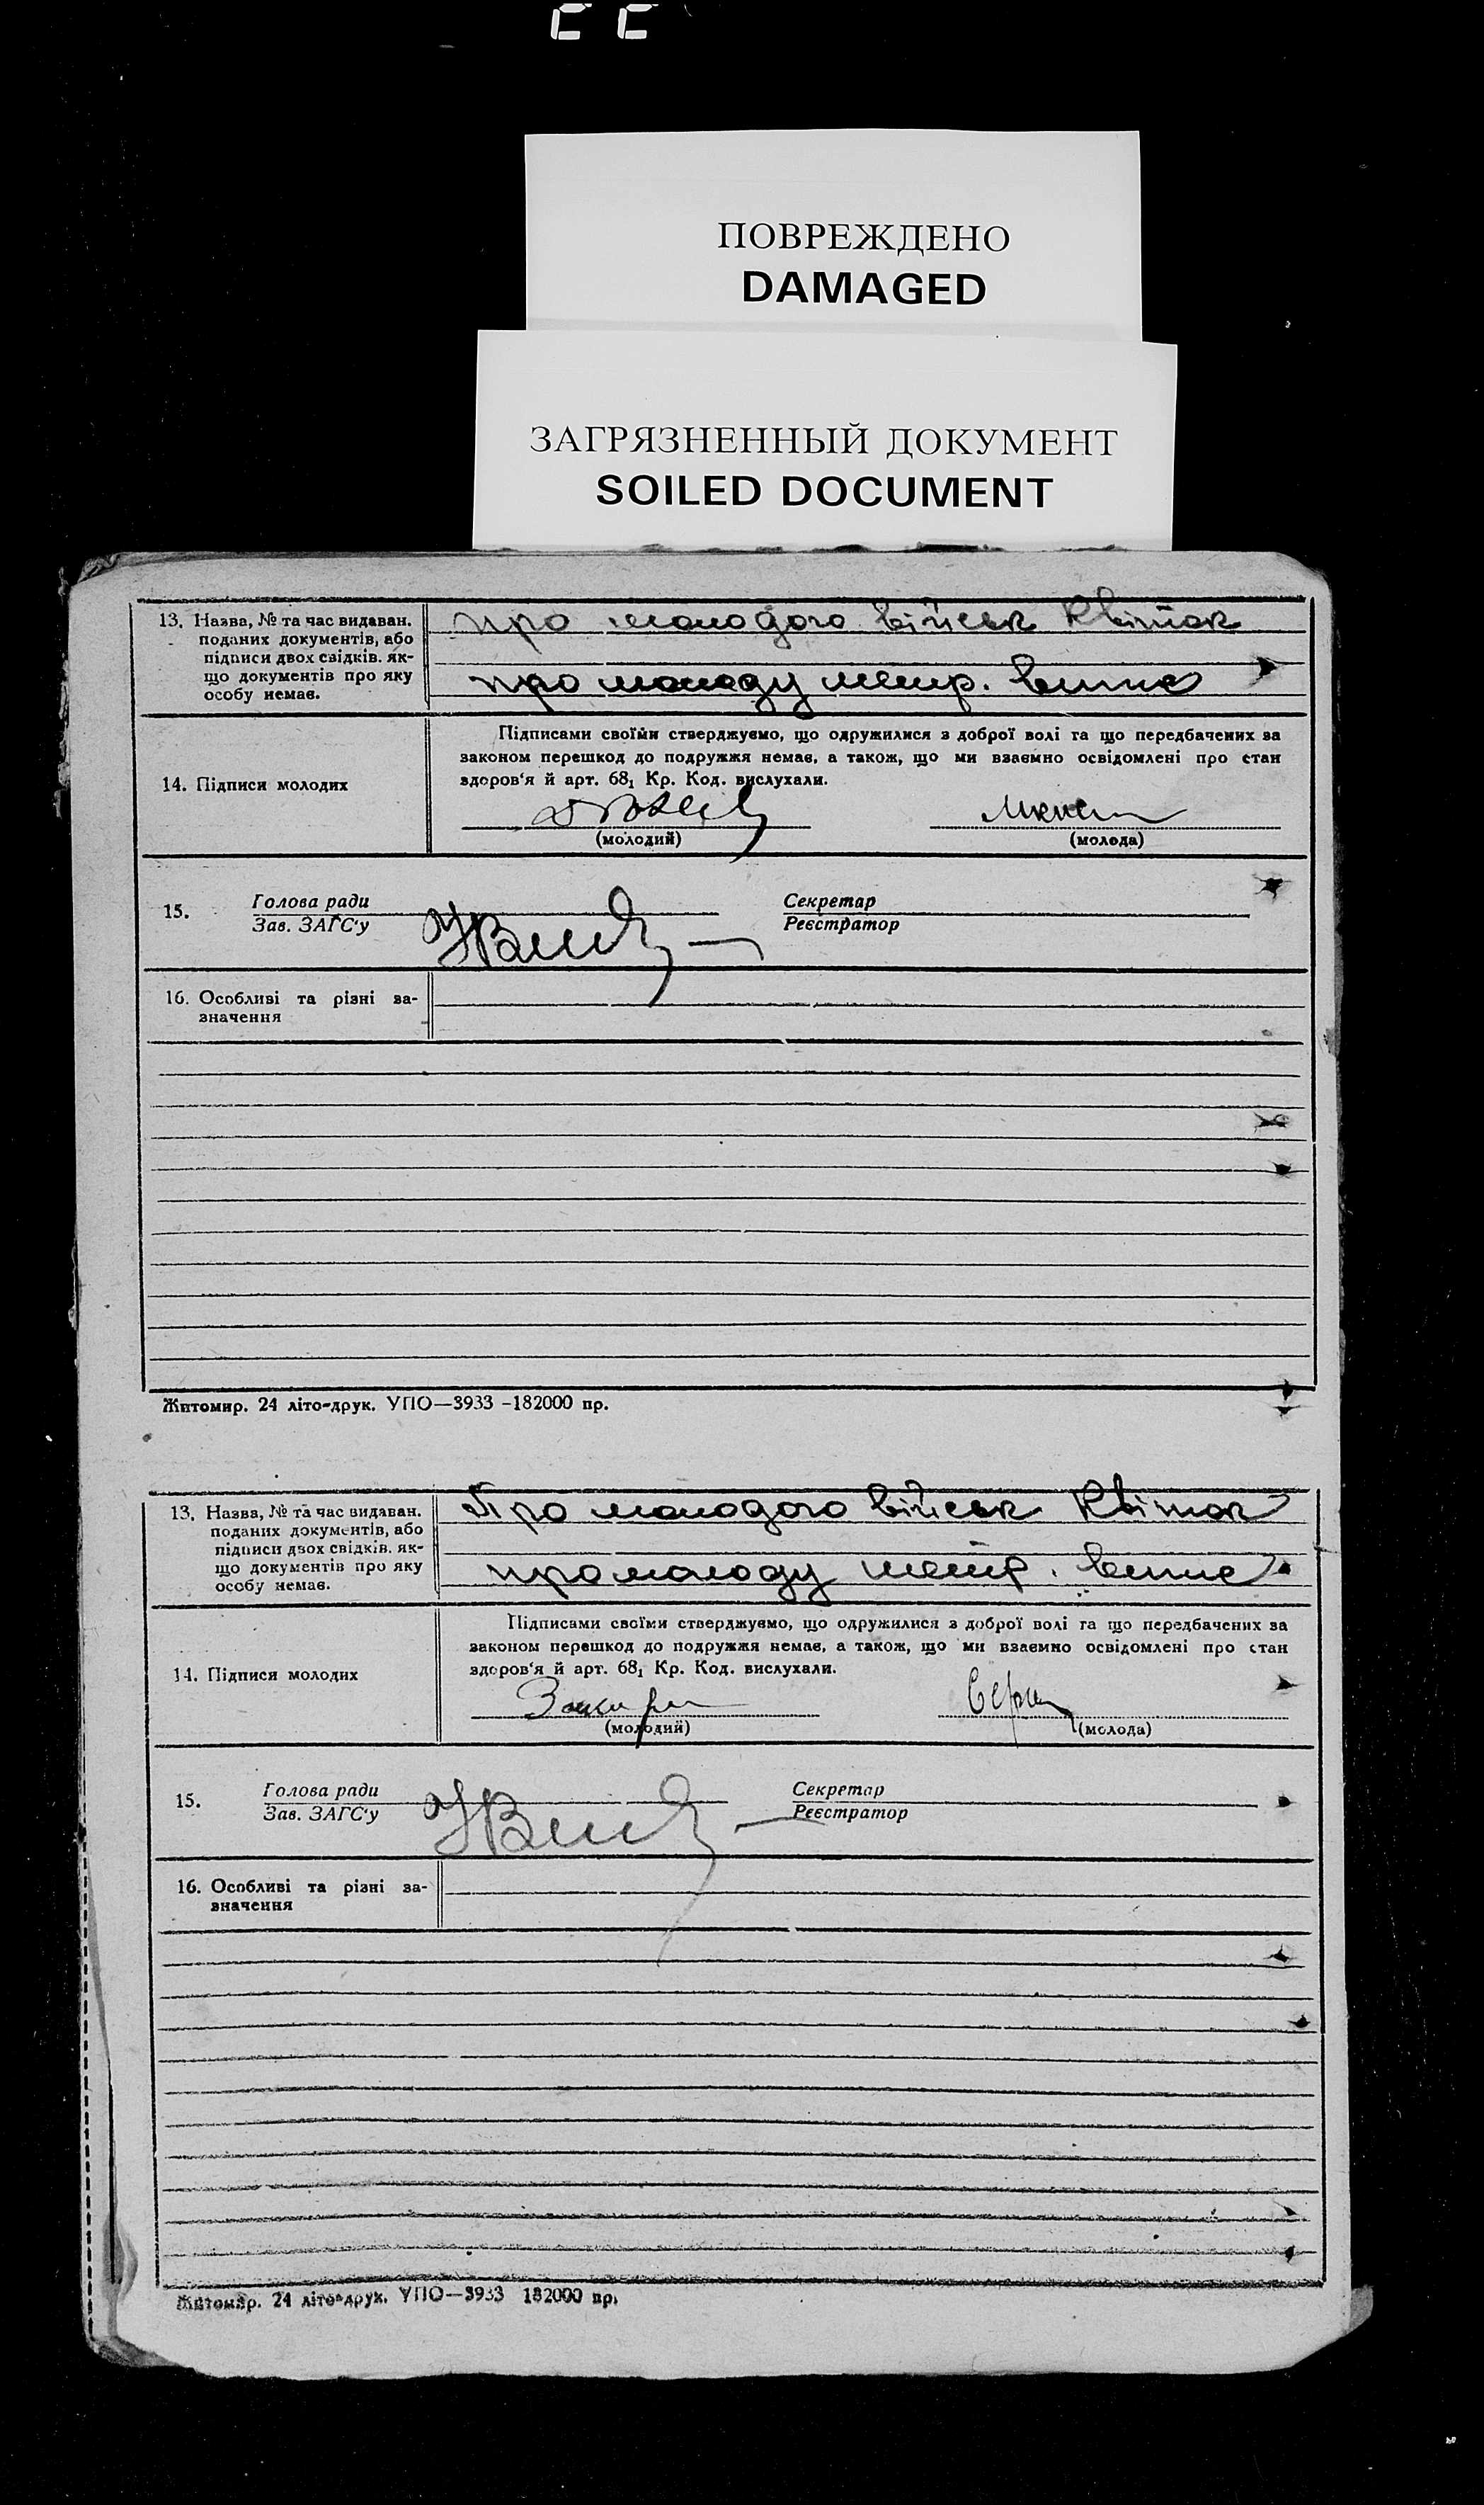 ПОВРЕЖДЕНО
DAMAGED
ЗАГРЯЗНЕННЫЙ ДОКУМЕНТ
SOILED DOCUMENT
13. Назва, № та час видаван.
поданих документів, або
підписи двох свідків. як-
що документів про яку
особу немає.
про молодого військ квіток
про молоду метр. випис
14. Підписи молодих
Підписами своїми стверджуємо, що одружилися з доброї волі та що передбачених за
законом перешкод до подружжя немає, а також, що ми взаємно освідомлені про стан
здоров'я й арт. 68₁ Кр. Код. вислухали.
(молодий)
(молода)
15.
Голова ради
Зав. ЗАГС'у
Секретар
Реєстратор
16. Особливі та різні за-
значення
Житомир. 24 літо-друк. УПО—3933 -182000 пр.
13. Назва, № та час видаван.
поданих документів, або
підписи двох свідків. як-
що документів про яку
особу немає.
Про молодого військ квіток
про молоду метр. випис
14. Підписи молодих
Підписами своїми стверджуємо, що одружилися з доброї волі та що передбачених за
законом перешкод до подружжя немає, а також, що ми взаємно освідомлені про стан
здоров'я й арт. 68₁ Кр. Код. вислухали.
(молодий)
(молода)
15.
Голова ради
Зав. ЗАГС'у
Секретар
Реєстратор
16. Особливі та різні за-
значення
Житомир. 24 літо-друк. УПО—3933 182000 пр.